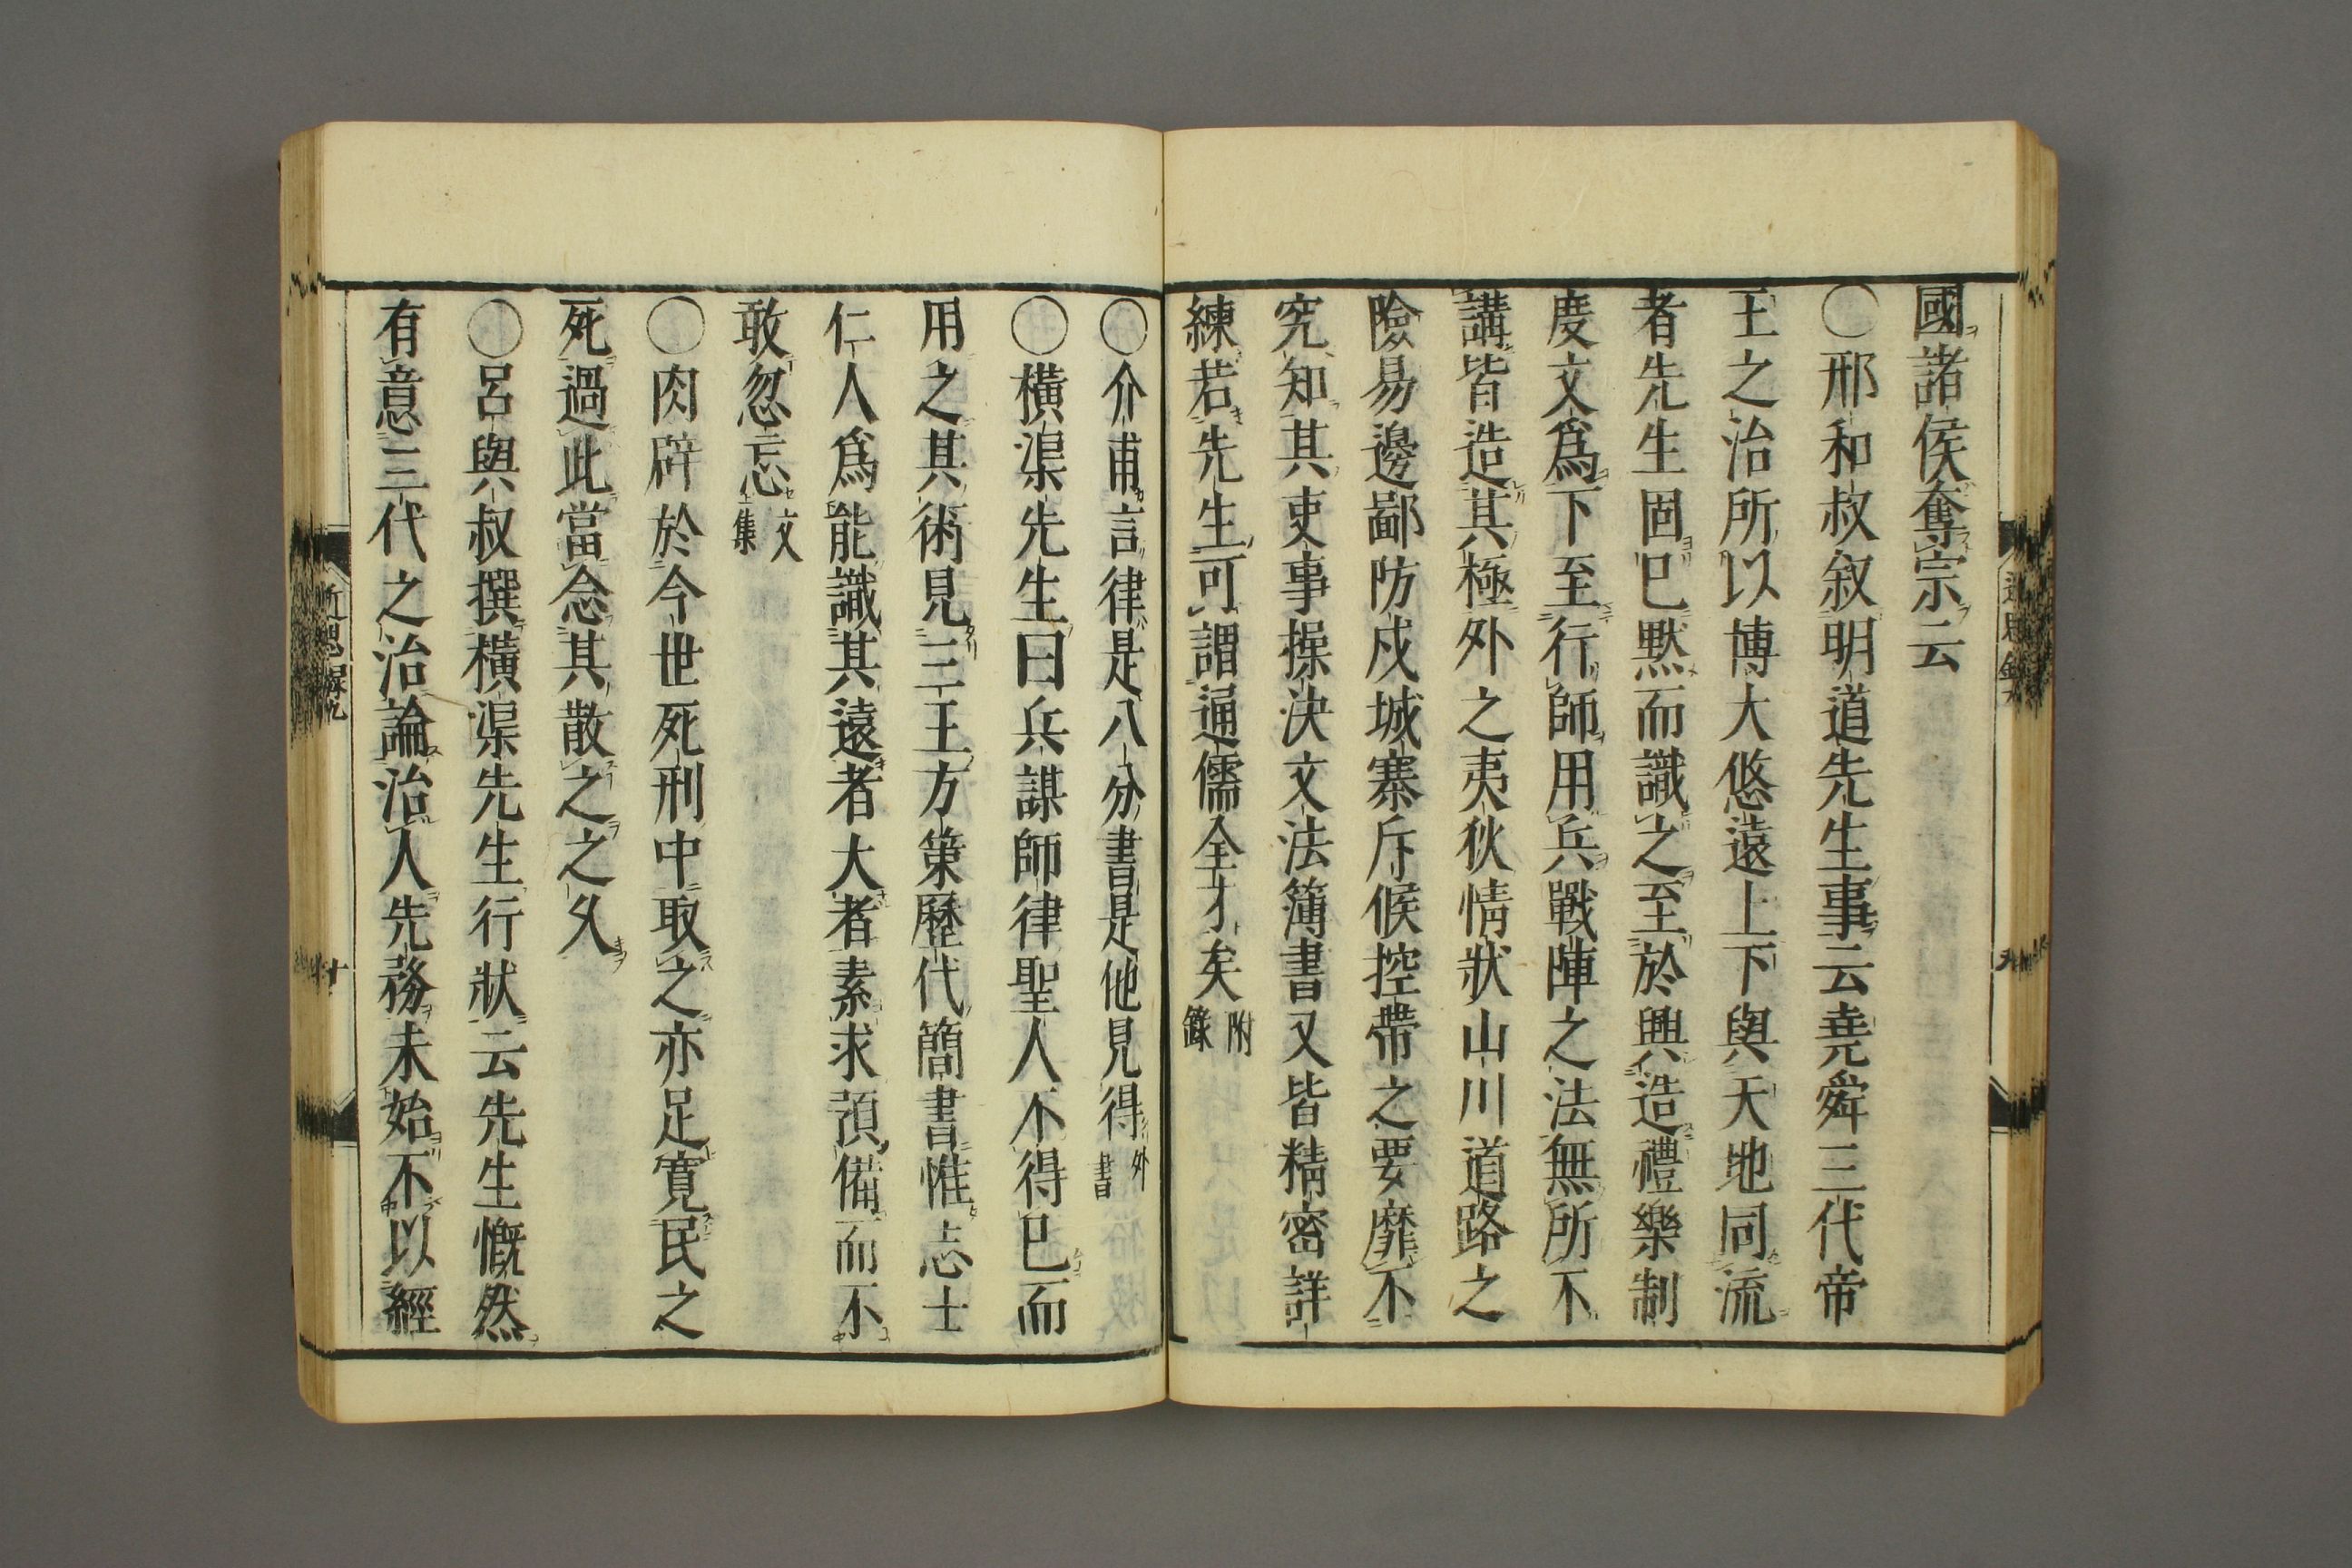 國諸侯奪宗云
〇邢和叔叙明道先生事云堯舜三代帝
王之治所以博大悠遠上下與天地同流
者先生固已黙而識之至於興造禮樂制
度文爲下至行師用兵戰陣之法無所不
講皆造其極外之夷狄情狀山川道路之
險易邊鄙防戍城寨斥候控帶之要靡不
究知其吏事操决文法簿書又皆精密詳
練若先生可謂通儒全才矣附錄
〇介甫言律是八分書是他見得外書
〇横渠先生曰兵謀師律聖人不得已而
用之其術見三王方策歷代簡書惟志士
仁人爲能識其遠者大者素求預備而不
敢忽忘文集
〇肉辟於今世死刑中取之亦足寛民之
死過此當念其散之之久
〇呂與叔撰横渠先生行狀云先生慨然
有意三代之治論治人先務未始不以經
十